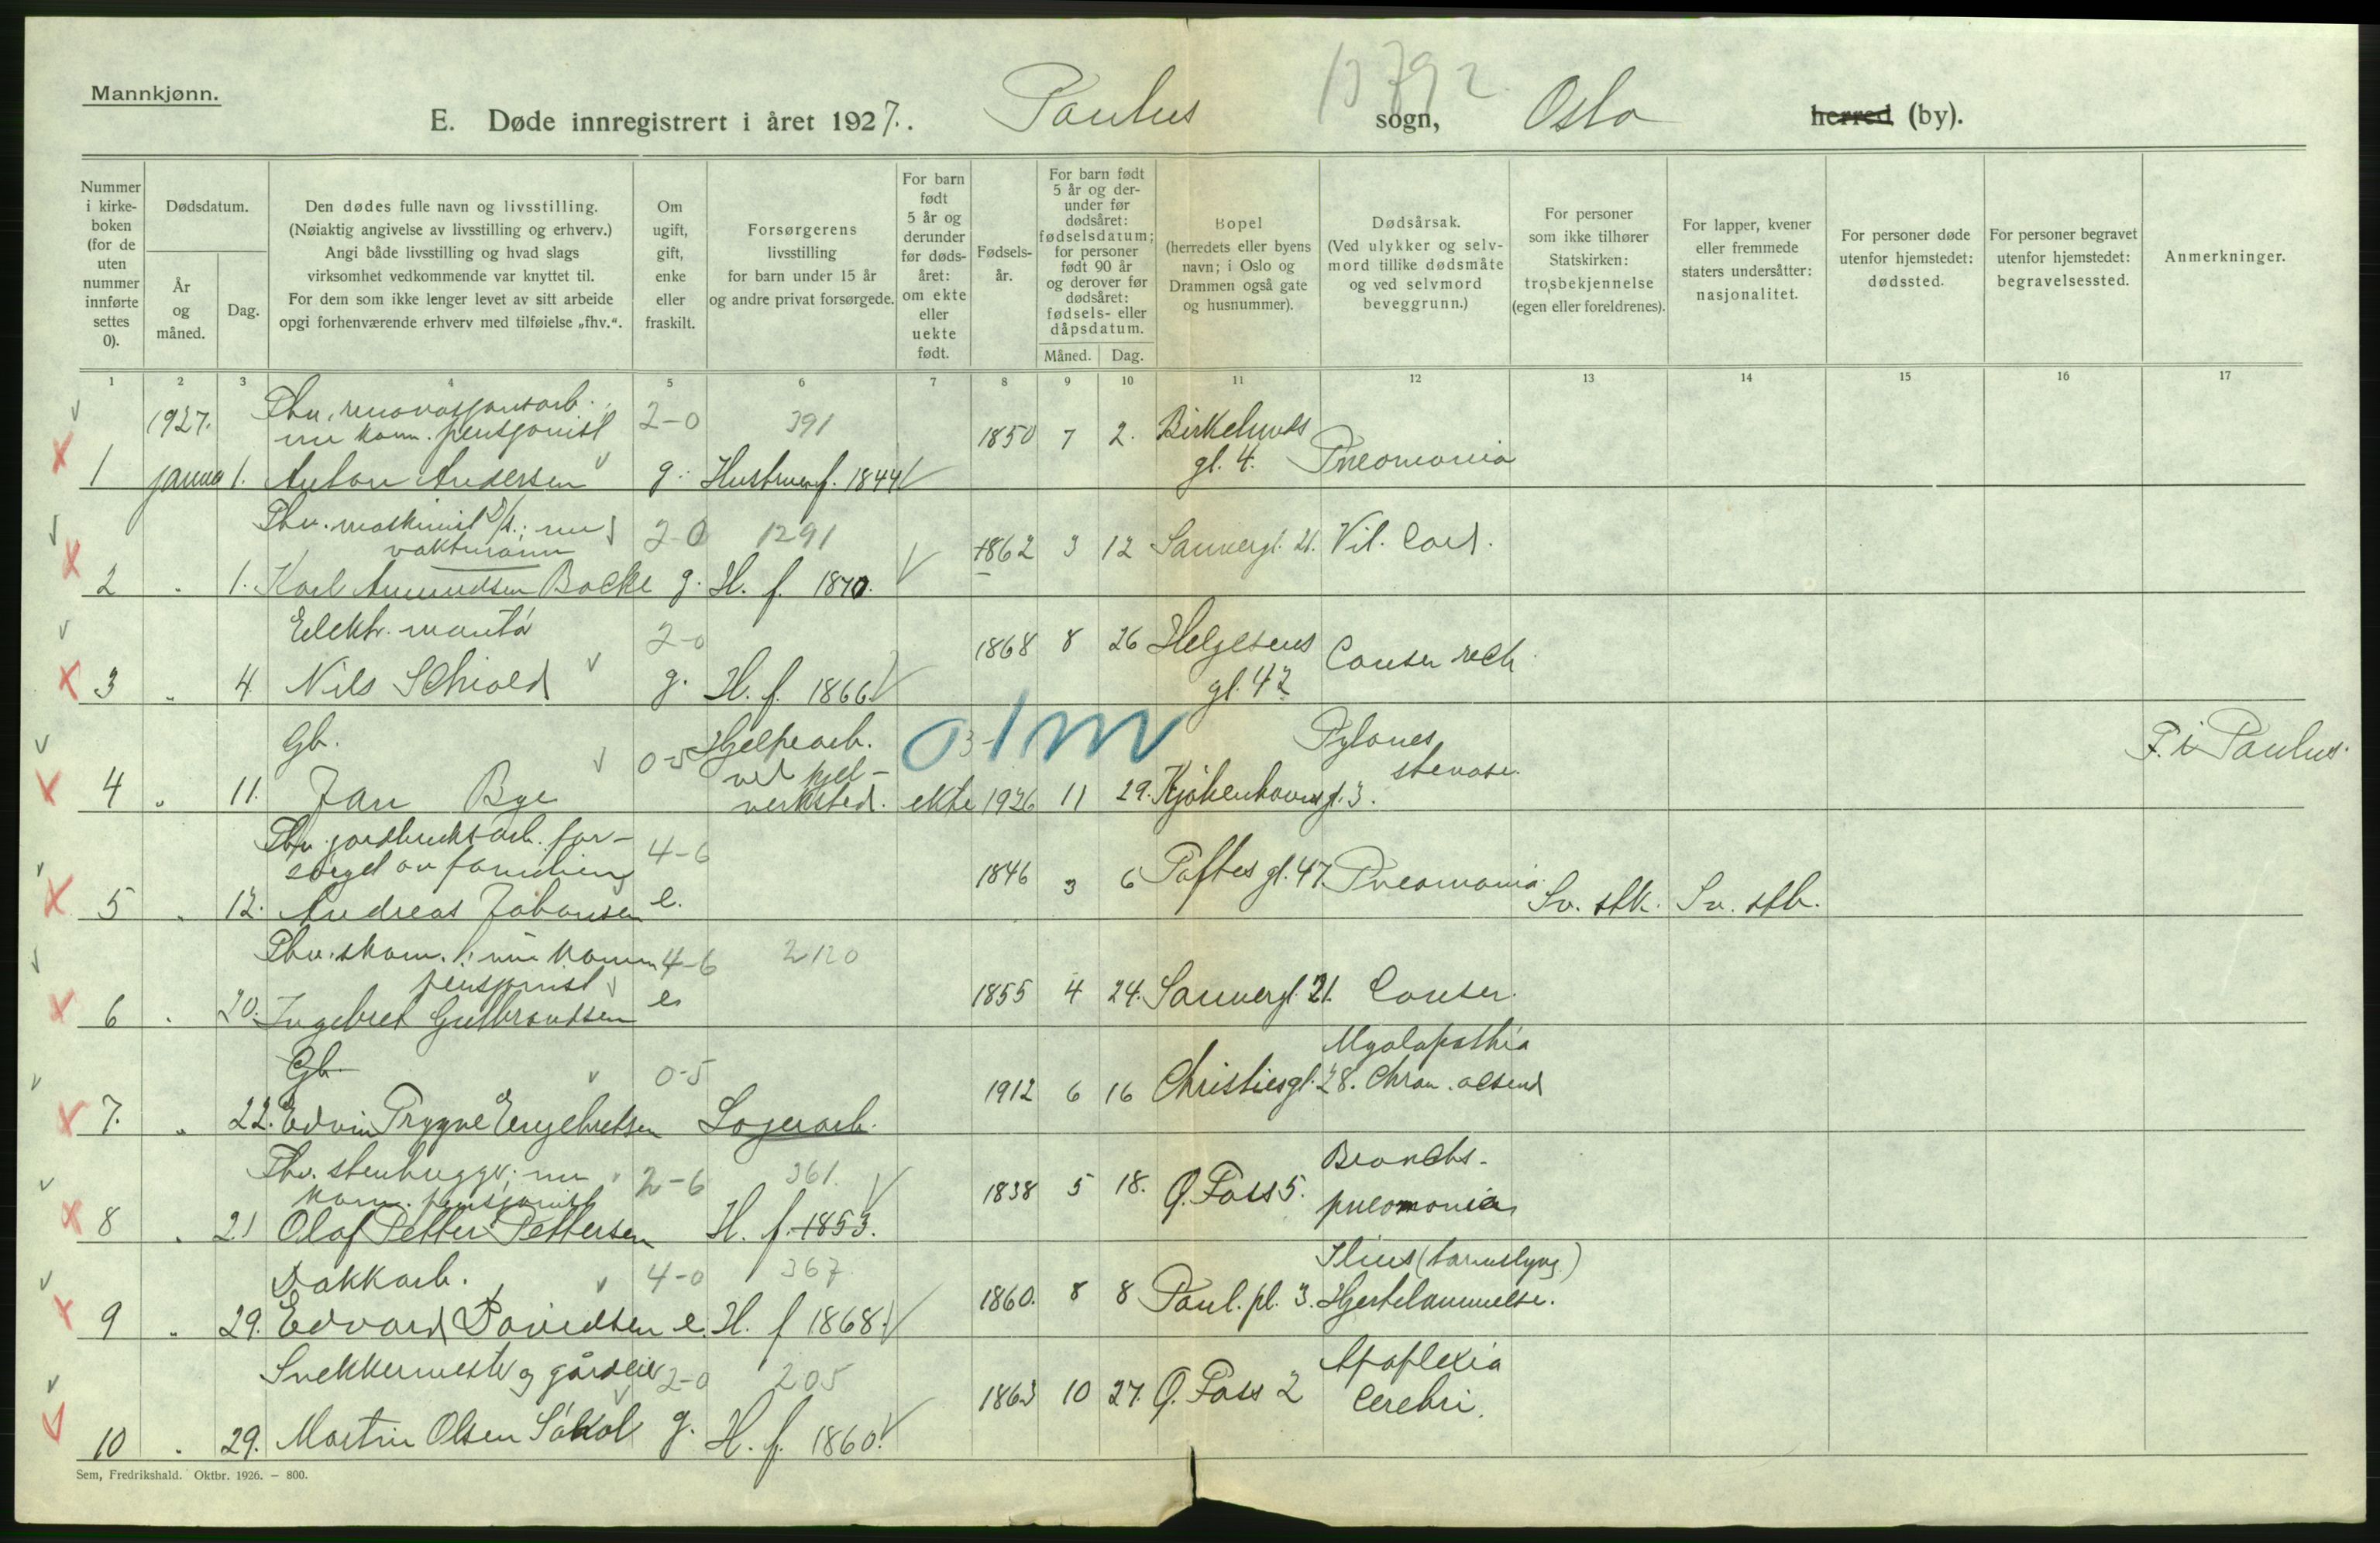 Mannkjønn.
E. Døde innregistrert i året 1927. Paulus sogn, Oslo herred (by).
13792
Nummer i kirke-boken (for de uten nummer innførte settes 0).
Dødsdatum.
År og måned.
Dag.
Den dødes fulle navn og livsstilling.
(Nøiaktig angivelse av livsstilling og erhverv.)
Angi både livsstilling og hvad slags
virksomhet vedkommende var knyttet til.
For dem som ikke lenger levet av sitt arbeide
opgi forhenværende erhverv med tilføielse „fhv.“.
Om ugift, gift, enke eller fraskilt.
Forsørgerens livsstilling for barn under 15 år og andre privat forsørgede.
For barn født 5 år og derunder før døds-året: om ekte eller uekte født.
Fødsels-år.
For barn født 5 år og der-under før dødsåret: fødselsdatum; for personer født 90 år og derover før dødsåret: fødsels- eller dåpsdatum.
Måned.
Dag.
Bopel (herredets eller byens navn; i Oslo og Drammen også gate og husnummer).
Dødsårsak. (Ved ulykker og selv-mord tillike dødsmåte og ved selvmord beveggrunn.)
For personer som ikke tilhører Statskirken: trosbekjennelse (egen eller foreldrenes).
For lapper, kvener eller fremmede staters undersåtter: nasjonalitet.
For personer døde utenfor hjemstedet: dødssted.
For personer begravet utenfor hjemstedet: begravelsessted.
Anmerkninger.
1 2 3 4 5 6 7 8 9 10 11 12 13 14 15 16 17
1927. Fhv. renovasjonsarb. 2-0 391
nu kom. pensjonist 1850 7 2. Birkelunds
1 janua 1. Anton Andersen g. Hustru f. 1844 gt. 4. Pneomonia
Fhv. maskinist D/S.; nu 2-0 1291
vaktmann 1862 3 12 Sannergt. 21. Vit. Cord.
2 " 1. Karl Amundsen Bache g. H. f. 1870.
Elektr. montø 2-0 1868 8 26 Helgesens
3 " 4. Nils Schiold g. H. f. 1866 gt. 42 Canser rech.
Gb. 0-5 Hjelpearb. 01m Pylones
ved stenose. F. i Paulus.
4 " 11. Jan Bye verksted. ekte 1926 11 29. Kjøbenhavnsgt. 3.
Fhv. jordbruksarb. for- 4-6
sørget av familien 1846 3 6 Toftes gt. 47. Pneomonia
5 " 12. Andreas Johansen e. Sv. stk. Sv. stb.
Fhv. nu komm 4-6 2120
pensjonist 1855 4 24. Sannergt. 21. Canser.
6 " 20. Ingebret Gulbrandsen e.
Gb. 0-5 Myolopathia
1912 6 16 Christiesgt. 28. Chron.
7. " 22. Edvin Trygve Engebretsen Lagerarb.
Fhv. stenhugger; nu 2-6 361. Broncho-
kom. pensjonist 1838 5 18. Q. Foss 5. pneomonia
8 " 21 Olaf Petter Pettersen H. f. 1853.
Dokkarb. 4-0 367 Ilius (tarmslyng)
1860. 8 8 Paul. pl. 3. Hjertelammelse.
9 " 29. Edvard Davidsen e. H. f 1868.
Snekkermester og gårdeier 2-0 205 Apoplexia
1863 10 27. Q. Foss 2 Cerebri.
10 " 29. Martin Olsen Såkol g. H. f. 1860.
Sem, Fredrikshald. Oktbr. 1926. — 800.